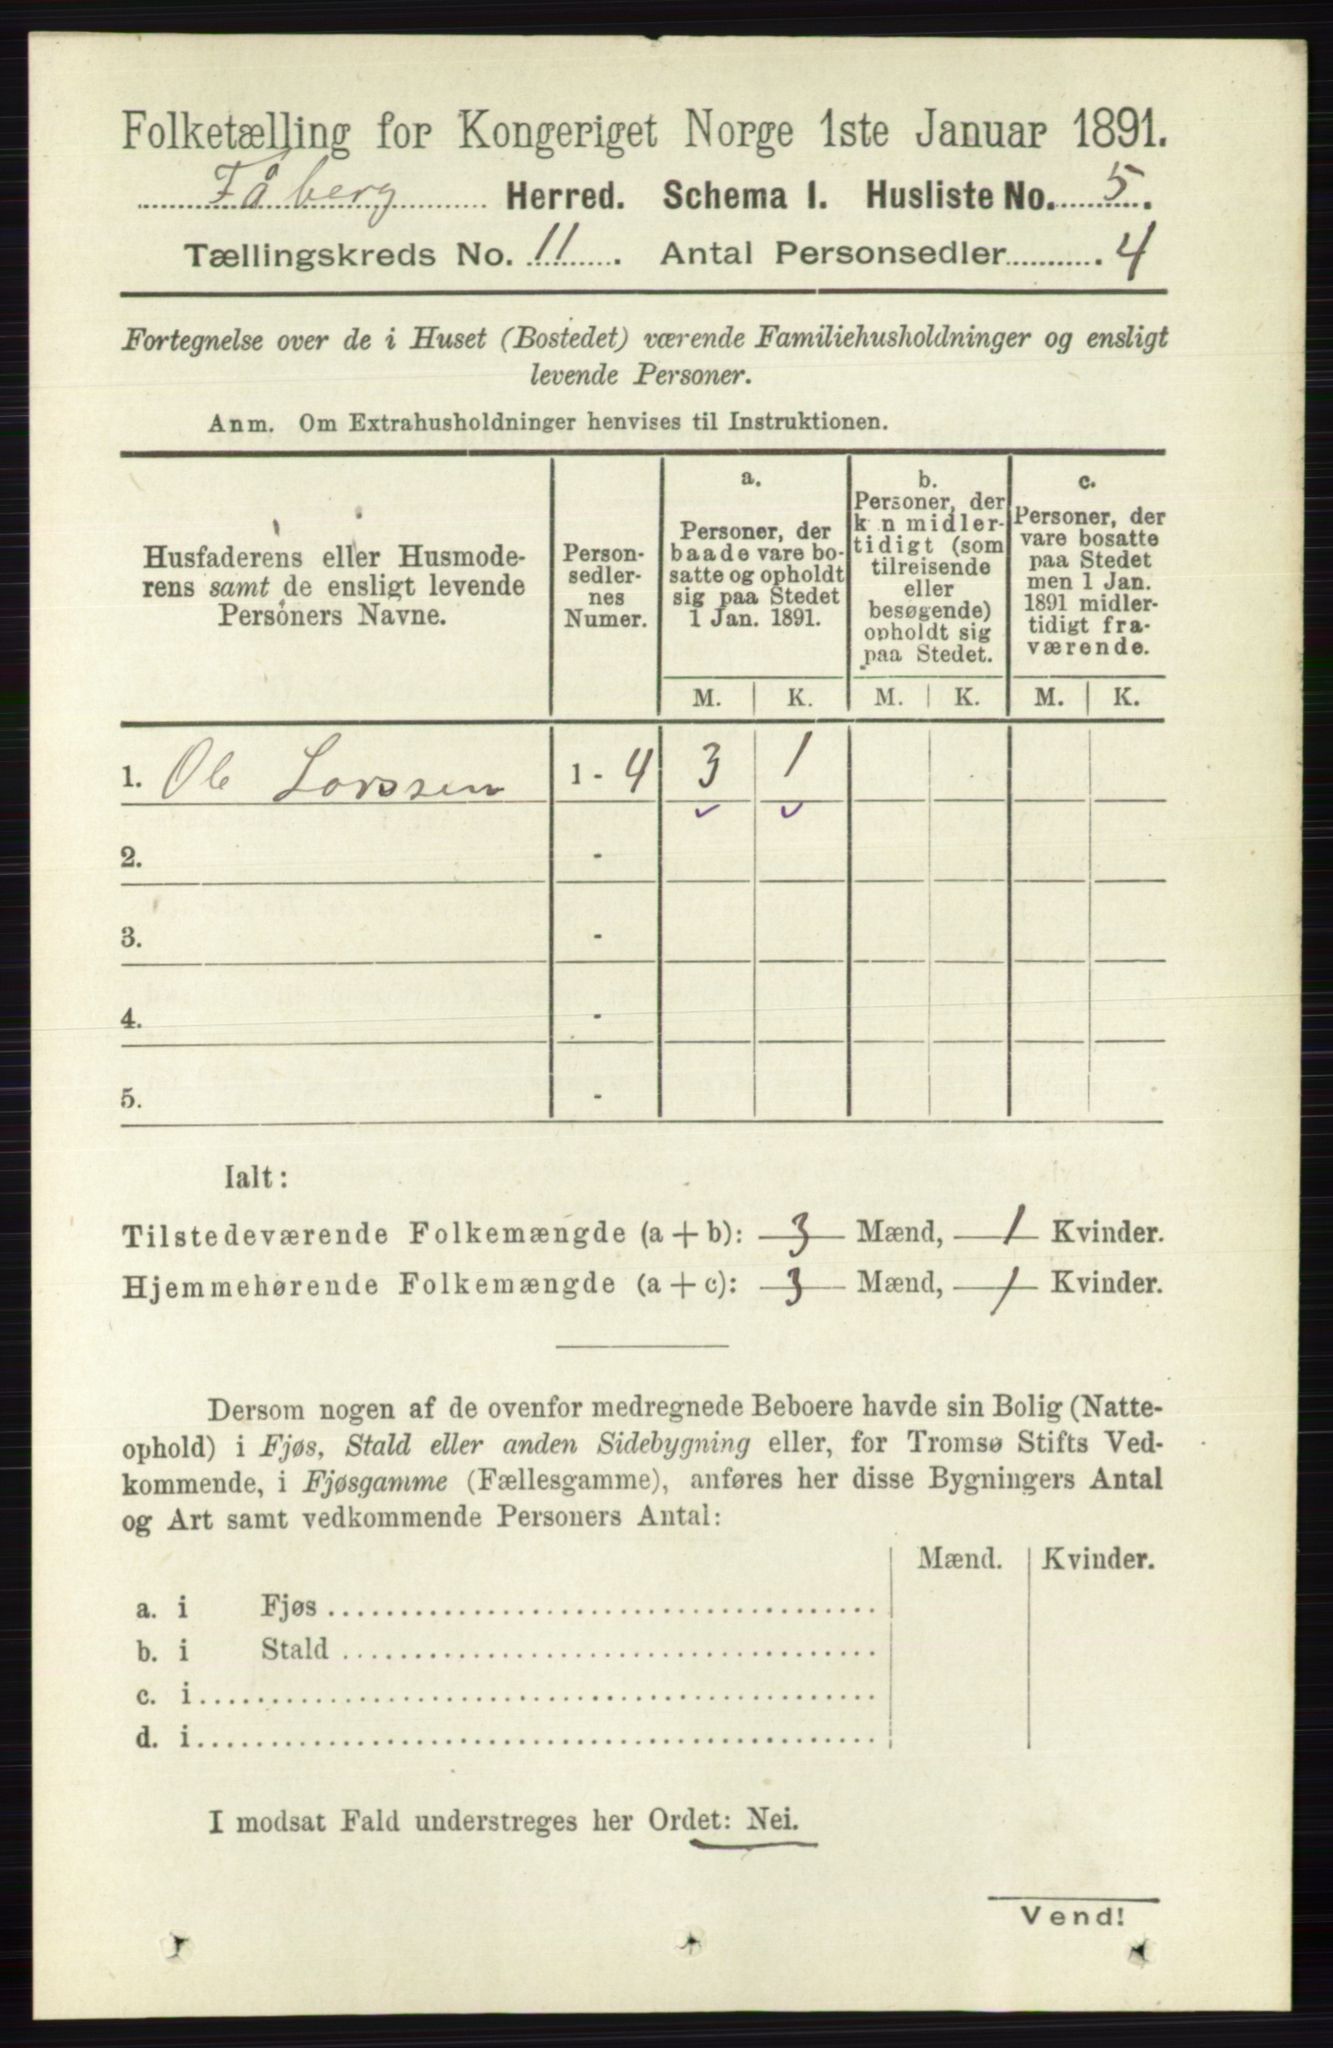 Folketælling for Kongeriget Norge 1ste Januar 1891.
Fåberg Herred. Schema I. Husliste No. 5.
Tællingskreds No. 11. Antal Personsedler 4
Fortegnelse over de i Huset (Bostedet) værende Familiehusholdninger og ensligt
levende Personer.
Anm. Om Extrahusholdninger henvises til Instruktionen.
Husfaderens eller Husmode-
rens samt de ensligt levende
Personers Navne.
Person-
sedler-
nes
Numer.
a.
Personer, der
baade vare bo-
satte og opholdt
sig paa Stedet
1 Jan. 1891.
b.
Personer, der
k n midler-
tidigt (som
tilreisende
eller
besøgende)
opholdt sig
paa Stedet.
c.
Personer, der
vare bosatte
paa Stedet
men 1 Jan.
1891 midler-
tidigt fra-
værende.
M. K. M. K. M. K.
1. Ole Larssen 1 - 4 3 1
2. -
3. -
4. -
5. -
Ialt:
Tilstedeværende Folkemængde (a + b): 3 Mænd, 1 Kvinder.
Hjemmehørende Folkemængde (a + c): 3 Mænd, 1 Kvinder.
Dersom nogen af de ovenfor medregnede Beboere havde sin Bolig (Natte-
ophold) i Fjøs, Stald eller anden Sidebygning eller, for Tromsø Stifts Ved-
kommende, i Fjøsgamme (Fællesgamme), anføres her disse Bygningers Antal
og Art samt vedkommende Personers Antal:
Mænd. Kvinder.
a. i Fjøs
b. i Stald
c. i
d. i
I modsat Fald understreges her Ordet: Nei.
Vend!